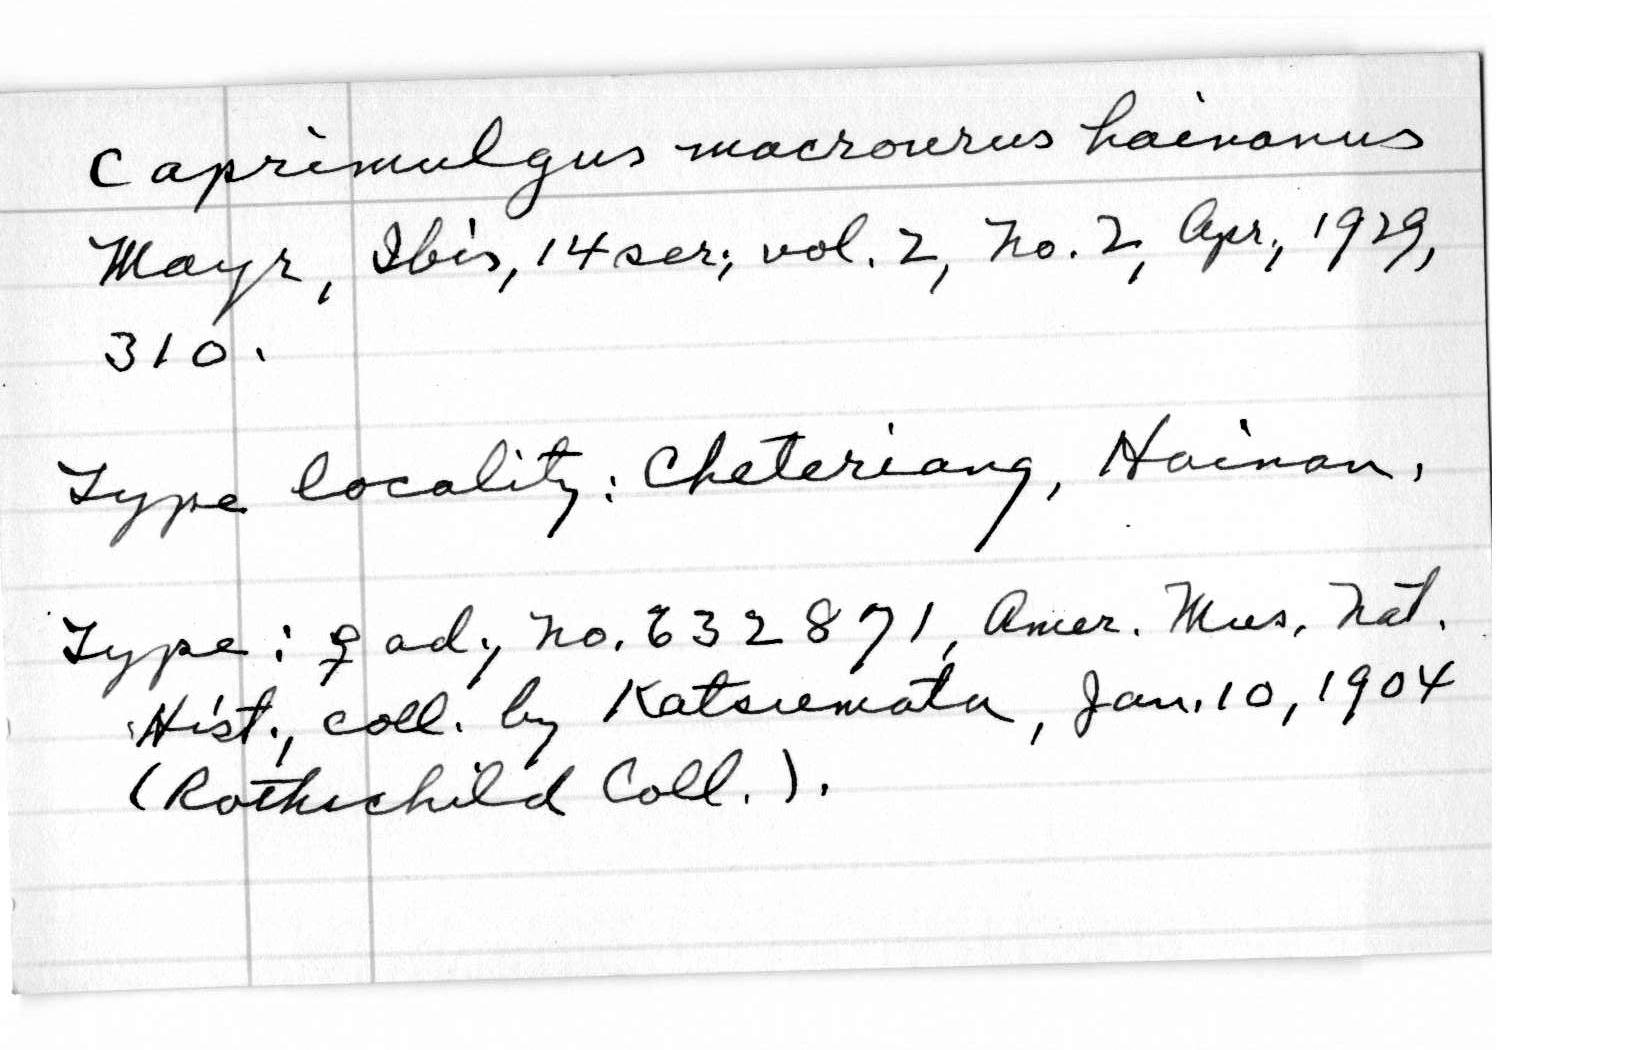 Caprimulgus macrourus hainanus
Mayr, Ibis, 14 ser., vol. 2, No. 2, Apr., 1929,
310.
Type locality: Cheteriang, Hainan.
Type: ♀ ad., No. 632871, Amer. Mus. Nat.
Hist., coll. by Katsumata, Jan. 10, 1904
(Rothschild Coll.).